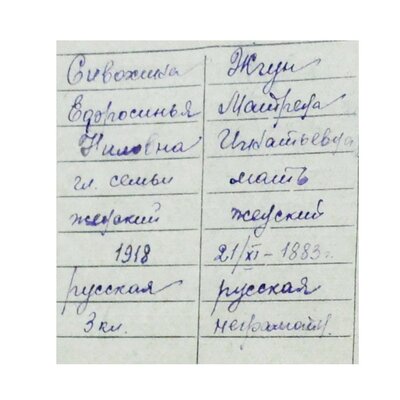 Сивохина
Ефросинья
Ниловна
гл. семьи
женский
1918
русская
3 кл.
Жгун
Матрена
Игнатьевна
мать
женский
21/XI - 1883 г.
русская
неграмотн.